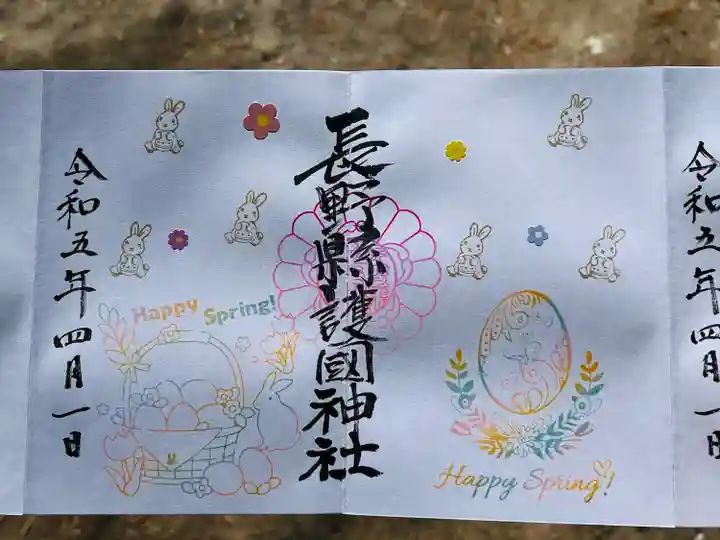 令和五年四月一日
長野縣護國神社
Happy Spring!
Happy Spring!
令和五年四月一日